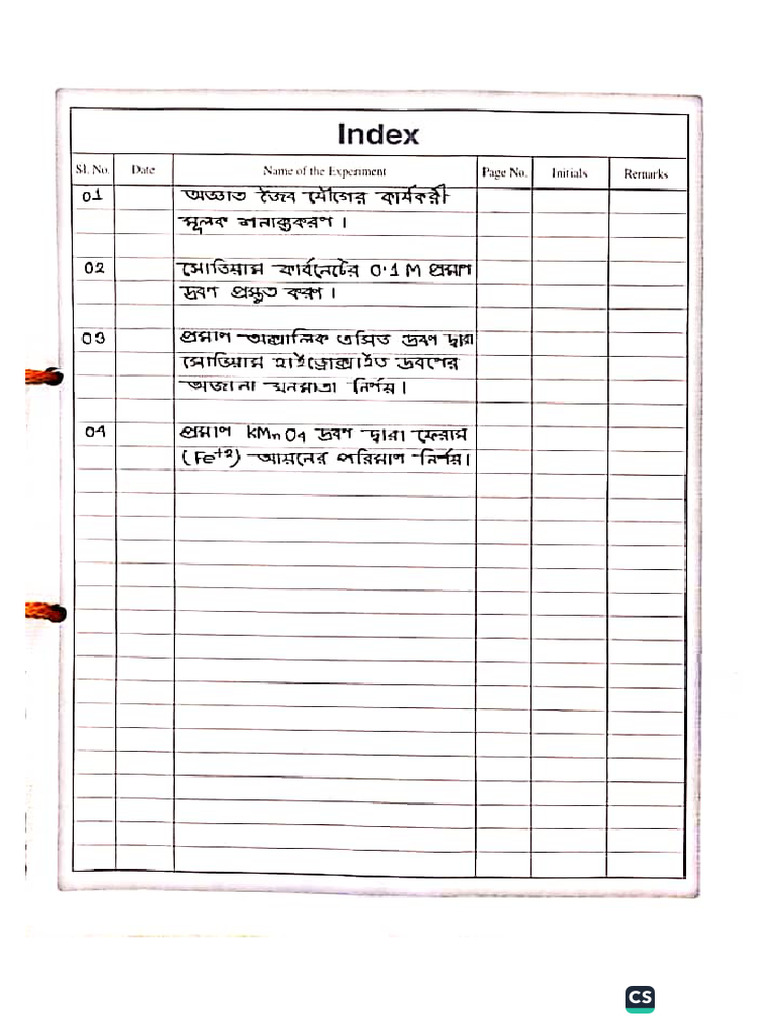 Index
Sl. No. Date Name of the Experiment Page No. Initials Remarks
01 অজ্ঞাত জৈব যৌগের কার্যকরী
মূলক শনাক্তকরণ।
02 সোডিয়াম কার্বনেটের 0.1 M প্রমাণ
দ্রবণ প্রস্তুত করণ।
03 প্রমাণ অক্সালিক এসিড দ্রবণ দ্বারা
সোডিয়াম হাইড্রোক্সাইড দ্রবণের
অজানা ঘনমাত্রা নির্ণয়।
04 প্রমাণ KMnO4 দ্রবণ দ্বারা ফেরাস
(Fe+2) আয়নের পরিমাণ নির্ণয়।
CS